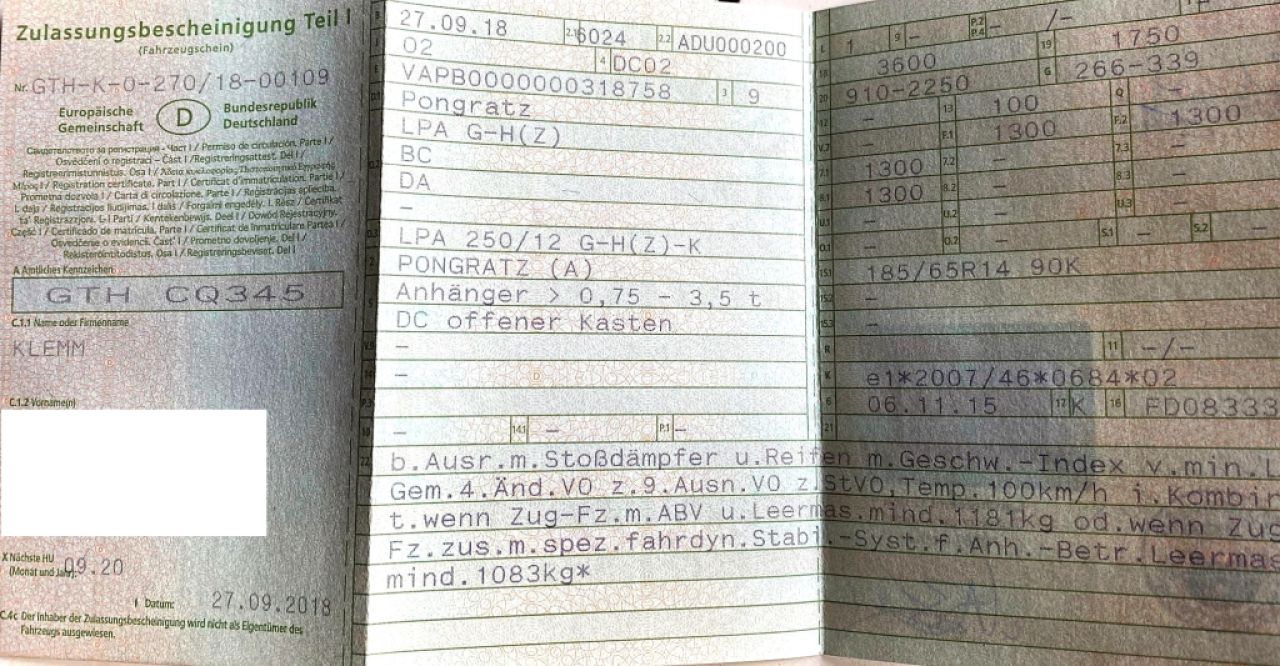 Zulassungsbescheinigung Teil I
(Fahrzeugschein)
Nr. GTH-K-0-270/18-00109
Europäische Gemeinschaft
D
Bundesrepublik Deutschland
Свидетелство за регистрация - Част I / Permiso de circulación. Parte I /
Osvědčení o registraci – Část I / Registreringsattest. Del I /
Registreerimistunnistus. Osa I / Άδεια κυκλοφορίας
Μέρος I / Registration certificate. Part I / Certificat d'immatriculation. Partie I /
Prometna dozvola I / Carta di circolazione. Parte I / Reģistrācijas apliecība.
I. daļa / Registracijos liudijimas. I dalis / Forgalmi engedély. I. Rész / Ċertifikat
ta' Reġistrazzjoni. L-I Parti / Kentekenbewijs. Deel I / Dowód Rejestracyjny.
Część I / Certificado de matrícula. Parte I / Certificat de înmatriculare Partea I /
Osvedčenie o evidencii. Časť I / Prometno dovoljenje. Del I /
Rekisteröintitodistus. Osa I / Registreringsbeviset. Del I
A Amtliches Kennzeichen
GTH CQ345
C.1.1 Name oder Firmenname
KLEMM
C.1.2 Vorname(n)
X Nächste HU
(Monat und Jahr)
09.20
I Datum: 27.09.2018
C.4c Der Inhaber der Zulassungsbescheinigung wird nicht als Eigentümer des
Fahrzeugs ausgewiesen.
B 27.09.18 2.1 6024 2.2 ADU000200
J 02 4 DC02
E VAPB0000000318758 3 9
D.1 Pongratz
LPA G-H(Z)
BC
D.2 DA
–
D.3 LPA 250/12 G-H(Z)-K
2 PONGRATZ (A)
5 Anhänger > 0,75 - 3,5 t
DC offener Kasten
V.9 –
14 –
P.3
10 – 14.1 – P.1 –
L 1 9 – P.2 P.4 – /–
18 3600 19 1750
20 910-2250 G 266-339
12 – 13 100 Q –
V.7 – F.1 1300 F.2 1300
7.1 1300 7.2 – 7.3 –
8.1 1300 8.2 – 8.3 –
U.1 – U.2 – U.3 –
O.1 – O.2 – S.1 – S.2 –
15.1 185/65R14 90K
15.2 –
15.3 –
R 11 –/–
K e1*2007/46*0684*02
6 06.11.15 17 K 16 FD08333
21
22 b.Ausr.m.Stoßdämpfer u.Reifen m.Geschw.-Index v.min.L
Gem.4.Änd.VO z.9.Ausn.VO z.StVO,Temp.100km/h i.Kombin
t.wenn Zug-Fz.m.ABV u.Leermas.mind.1181kg od.wenn Zug
Fz.zus.m.spez.fahrdyn.Stabi.-Syst.f.Anh.-Betr.Leermas
mind.1083kg*